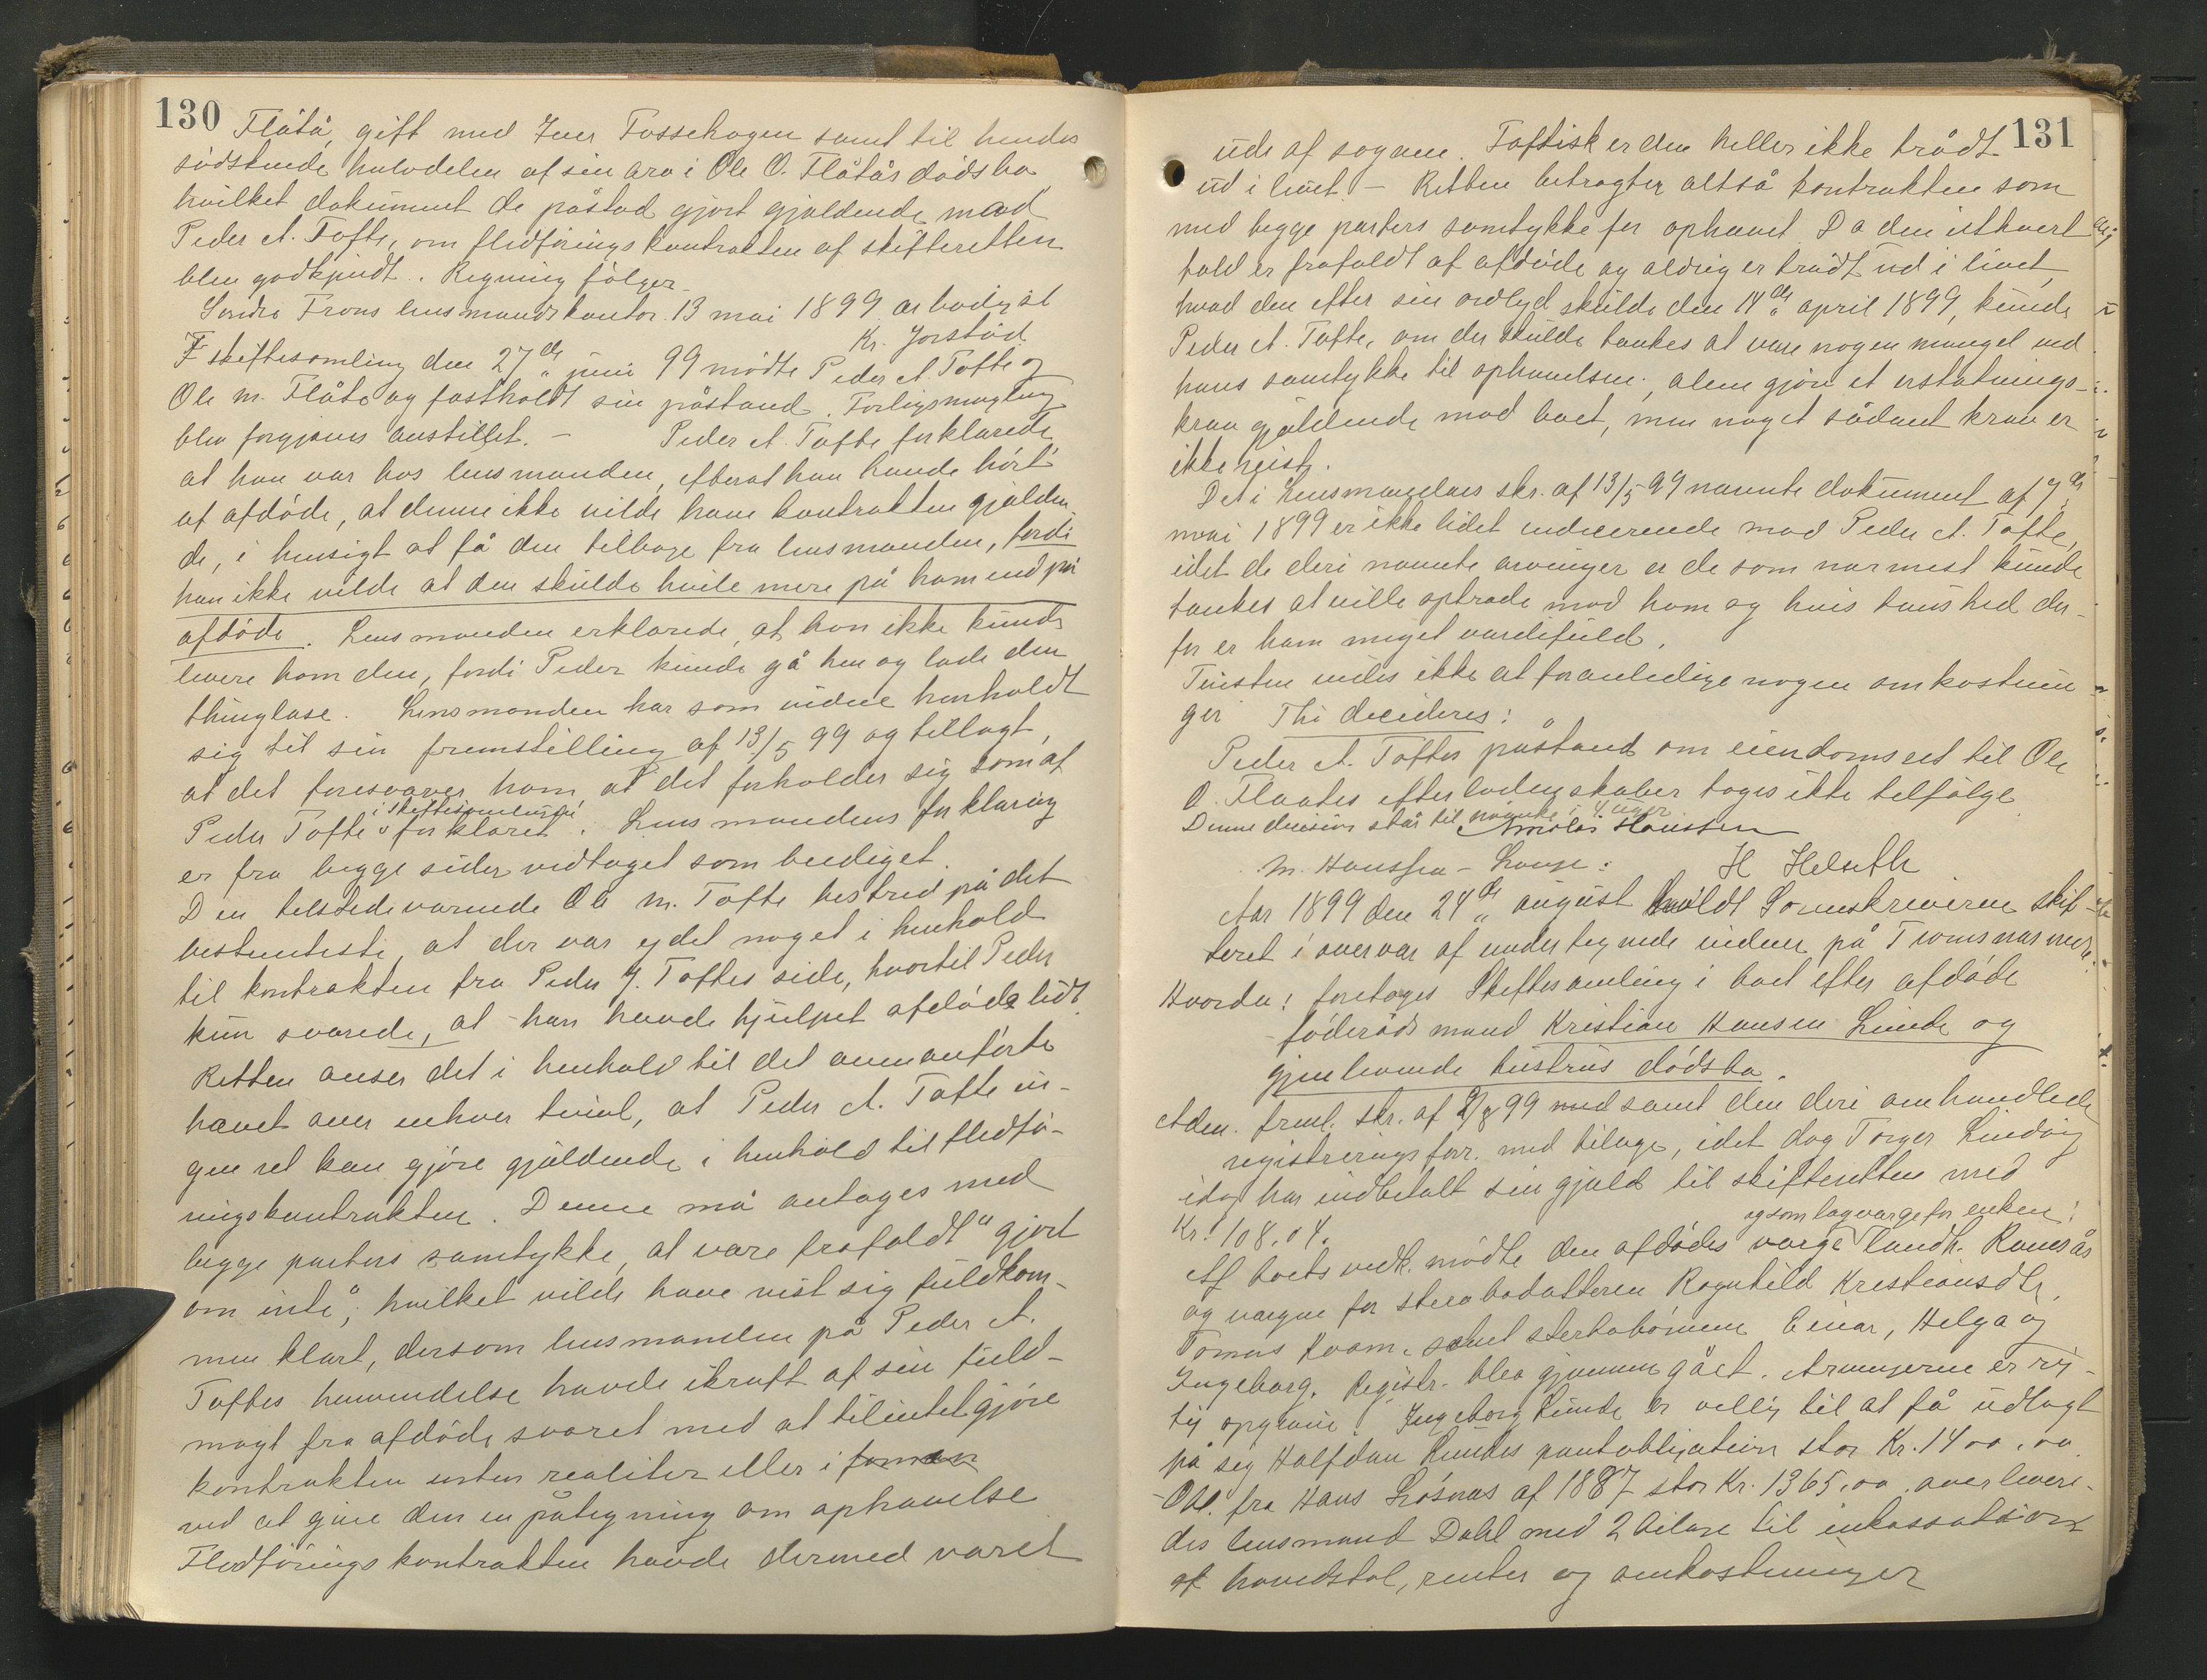 130
Flåtå, gift med Iver Fossehagen samt til hendes
södskende halvdelen af sin arv i Ole O. Flåtås dödsbo
hvilket dokument de påstod gjort gjældende mod
Peder A. Tofte, om fledföringskontrakten af skifteretten
blev godkjendt. Regning fölger
Söndre Frons lensmandskontor 13 mai 1899 ærbödigst
Kr. Jorstad
I skiftesamling den 27de juni 99 mödte Peder A. Tofte og
Ole M. Flåte og fastholdt sin påstand. Forligsmægling
blev forgjæves anstillet. – Peder A. Tofte forklarede
at han var hos lensmanden, efterat han havde hört
af afdöde, at denne ikke vilde have kontrakten gjælden
de, i hensigt at få den tilbage fra lensmanden, fordi
han ikke vilde at den skulde hvile mere på ham end på
afdöde. Lensmanden erklærede, at han ikke kunde
levere ham den, fordi Peder kunde gå hen og lade den
thinglæse. Lensmanden har som vidne henholdt
sig til sin fremstilling af 13/5 99 og tillagt,
at det foresvæver ham at det forholder sig som af
Peder Tofte i skiftesamlingen forklaret. Lensmandens forklaring
er fra begge sider vedtaget som beediget.
Den tilstedeværende Ole M. Tofte bestred på det
bestemteste, at der var ydet noget i henhold
til kontrakten fra Peder J. Toftes side, hvortil Peder
kun svarede, at han havde hjulpet afdöde lidt.
Retten anser det i henhold til det ovenanförte
hævet over enhver tvivl, at Peder A. Tofte in-
gen ret kan gjöre gjældende i henhold til fledfö-
ringskontrakten. Denne må antages med
begge parters samtykke, at være frafaldt "gjort
om inte", hvilket vilde have vist sig fuldkom-
men klart, dersom lensmanden på Peder A.
Toftes henvendelse havde ikraft af sin fuld-
magt fra afdöde svaret med at tilintetgjöre
kontrakten enten realiter eller i formen
ved at give den en påtegning om ophævelse
Fledföringskontrakten havde dermed været
131
ude af sagaen. Faktisk er den heller ikke trådt
ud i livet. – Retten betragter altså kontrakten som
med begge parters samtykke for ophævet. Da den ithvert
fald er frafaldt af afdöde og aldrig er trådt ud i livet,
hvad den efter sin ordlyd skulde den 14de april 1899, kunde
Peder A. Tofte, om der skulde tænkes at være nogen mangel ved
hans samtykke til ophævelsen, alene gjöre et erstatnings-
krav gjældende mod boet, men noget sådant krav er
ikke reist.
Det i Lensmandens skr. af 13/5 99 nævnte dokument af 7de
mai 1899 er ikke lidet indicerende mod Peder A. Tofte,
idet de deri nævnte arvinger er de som nærmest kunde
tænkes at ville optræde mod ham og hvis taushed der-
for er ham meget værdifuld.
Tvisten vides ikke at foranledige nogen omkostnin
ger Thi decideres:
Peder A. Toftes påstand om eiendomsret til Ole
O. Flaates efterladenskaber tages ikke tilfölge
Denne decision står til påanke i 4 uger
Nicolai Hanssen
M. Hanssen-Lauge: H Helseth
Aar 1899 den 24de august holdt Sorenskriveren skif-
teret i overvær af undertegnede vidner på Tromsnæs nedre.
Hvorda: foretoges Skiftesamling i boet efter afdöde
föderådsmand Kristian Hansen Lunde og
gjenlevende hustrus dödsbo.
Adm. freml. skr. af 2/8 99 med samt den deri omhandlede
registreringsforr. med bilage, idet dog Torger Lindvig
idag har indbetalt sin gjæld til skifteretten med
Kr. 108.04.
og som lagværge for enken:
Af boets vedk. mödte den afdödes værge landh. Ramsås
og værgen for sterbodatteren Ragnhild Kristiansdtr.
Tomas Kvam, samt sterbobörnene Einar, Helga og
Ingeborg. Registr. blev gjennemgået. Arvingerne er rig-
tig opgivne. Ingeborg Lunde er villig til at få udlagt
på sig Halfdan Lundes pantobligation stor Kr. 1400.00
Obl. fra Hans Lösnæs af 1887 stor Kr. 1365.00 overlevere-
des lensmand Dahl med 2 bilage til inkassation
af hovedstol, renter og omkostninger